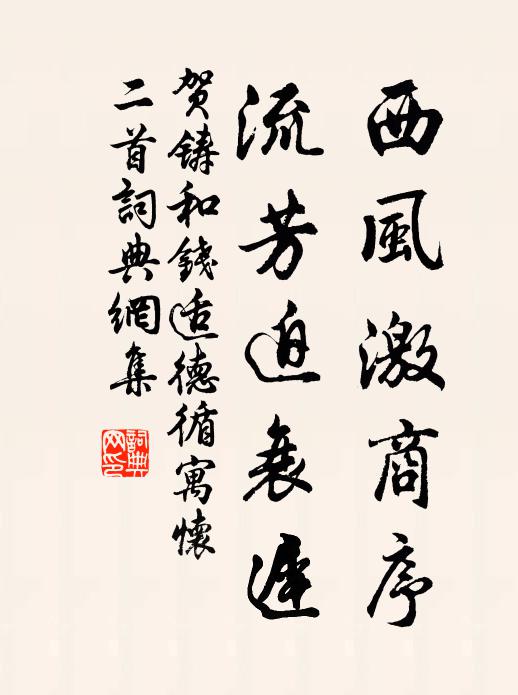 西風激商序
流芳迫衰遲
贺鑄和錢适德循寓懷
二首詞典網集
詞典网印